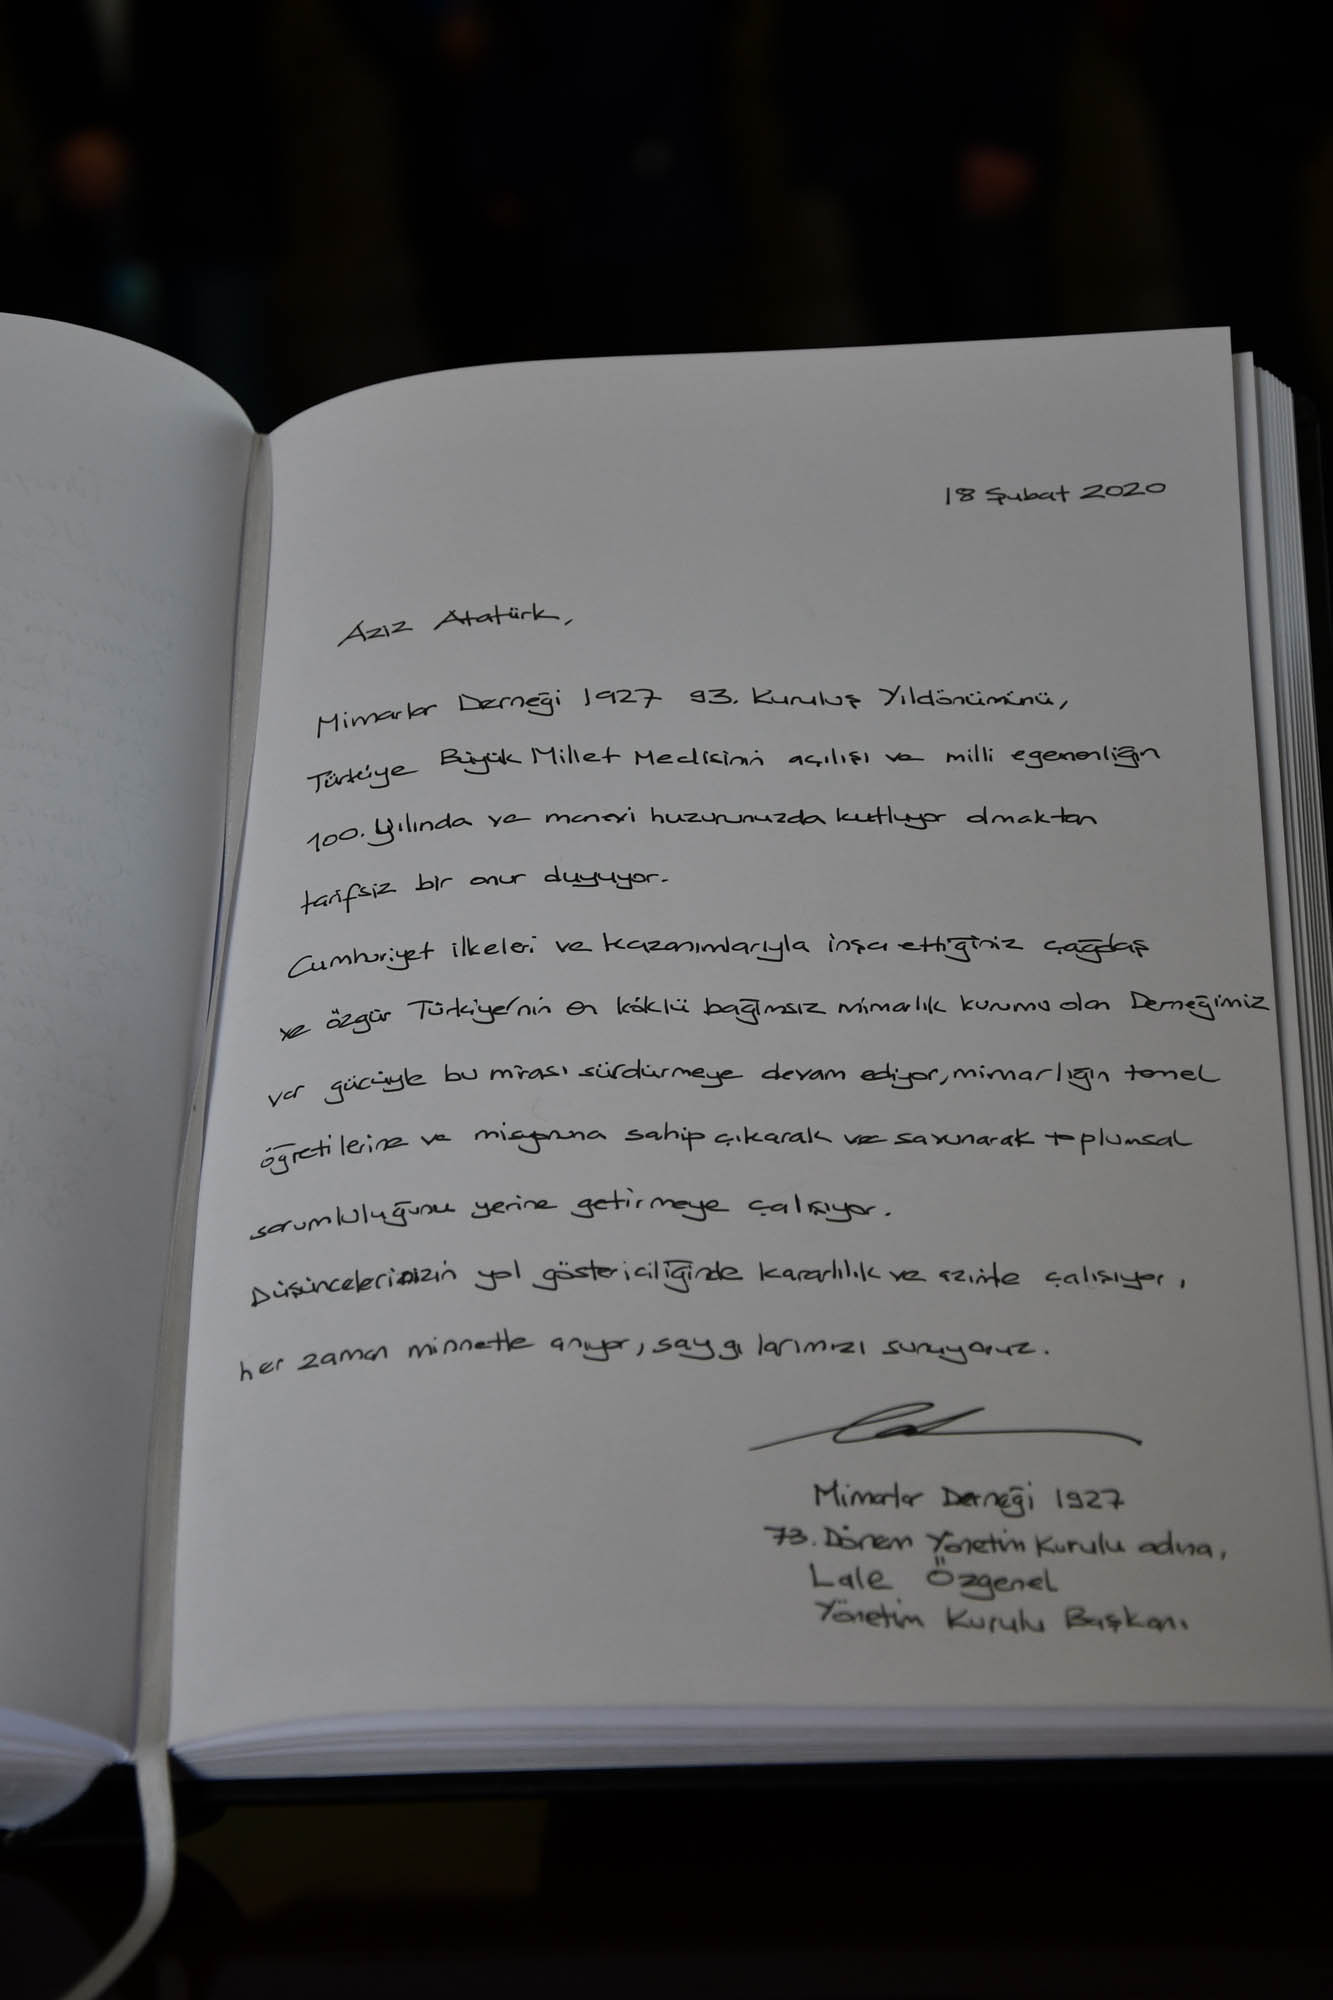 18 Şubat 2020
Aziz Atatürk,
Mimarlar Derneği 1927 93. Kuruluş Yıldönümünü,
Türkiye Büyük Millet Meclisinin açılışı ve milli egemenliğin
100. yılında ve manevi huzurunuzda kutluyor olmaktan
tarifsiz bir onur duyuyor.
Cumhuriyet ilkeleri ve kazanımlarıyla inşa ettiğiniz çağdaş
ve özgür Türkiye'nin en köklü bağımsız mimarlık kurumu olan Derneğimiz
var gücüyle bu mirası sürdürmeye devam ediyor, mimarlığın temel
öğretilerine ve misyonuna sahip çıkarak ve savunarak toplumsal
sorumluluğunu yerine getirmeye çalışıyor.
Düşüncelerinizin yol göstericiliğinde kararlılık ve azimle çalışıyor,
her zaman minnetle anıyor, saygılarımızı sunuyoruz.
Mimarlar Derneği 1927
73. Dönem Yönetim Kurulu adına,
Lale Özgenel
Yönetim Kurulu Başkanı